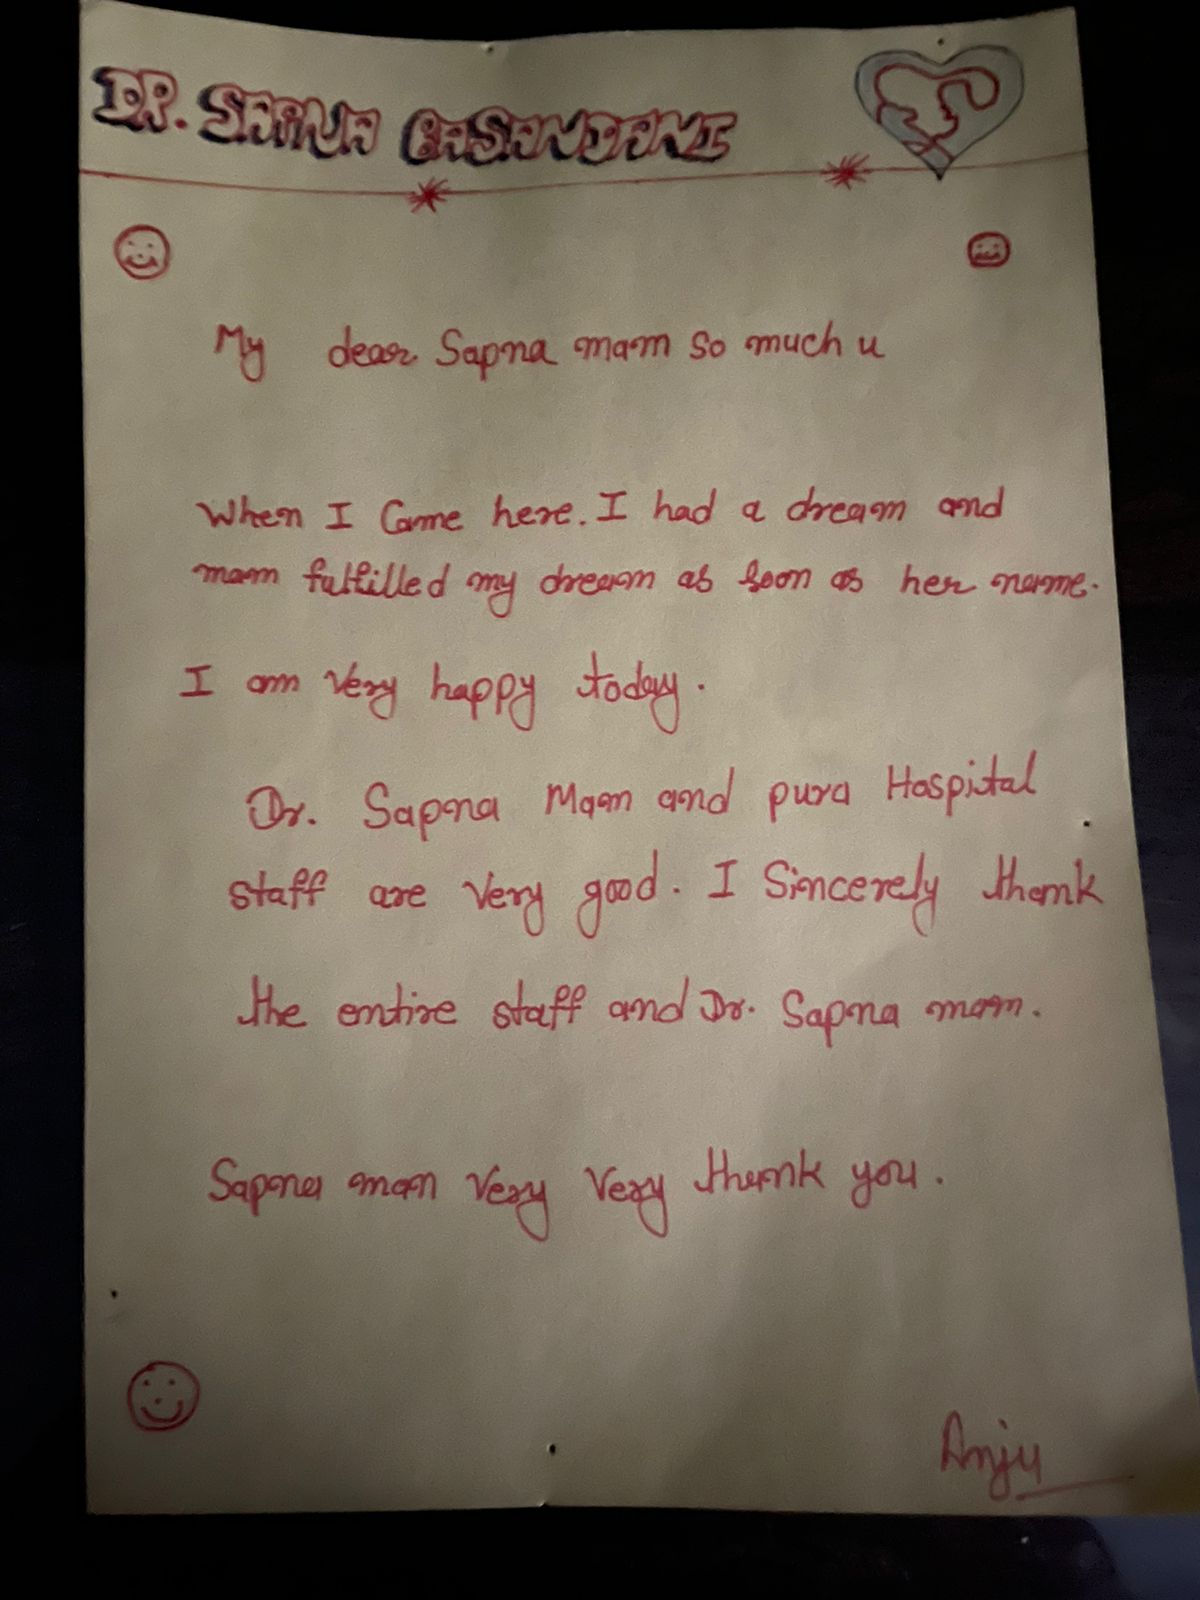 DR. SAPNA BASANDANI
My dear Sapna mam so much u
When I Came here. I had a dream and
mam fulfilled my dream as soon as her name.
I am very happy today.
Dr. Sapna Mam and pura Hospital
staff are very good. I Sincerely thank
the entire staff and Dr. Sapna mam.
Sapna mam very very thank you.
Anju